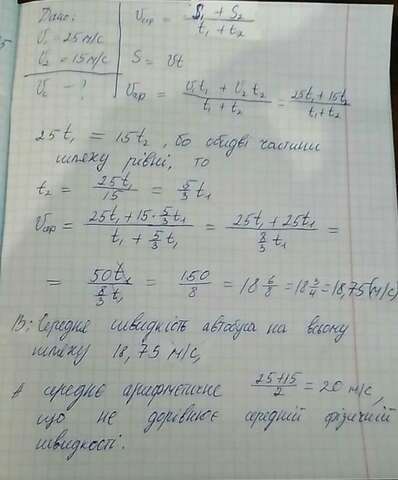 Дано:
V₁ = 25 м/с
V₂ = 15 м/с
Vc - ?
Vср = (S₁ + S₂)/(t₁ + t₂)
S = Vt
Vср = (V₁t₁ + V₂t₂)/(t₁ + t₂) = (25t₁ + 15t₂)/(t₁ + t₂)
25t₁ = 15t₂, бо обидві частини
шляху рівні, то
t₂ = 25t₁/15 = 5/3 t₁
Vср = (25t₁ + 15·5/3 t₁)/(t₁ + 5/3 t₁) = (25t₁ + 25t₁)/(8/3 t₁) =
= 50t₁/(8/3 t₁) = 150/8 = 18 6/8 = 18 3/4 = 18,75 (м/с)
В: Середня швидкість автобуса на всьому
шляху 18,75 м/с,
А середнє арифметичне (25+15)/2 = 20 м/с,
що не дорівнює середній фізичній
швидкості.